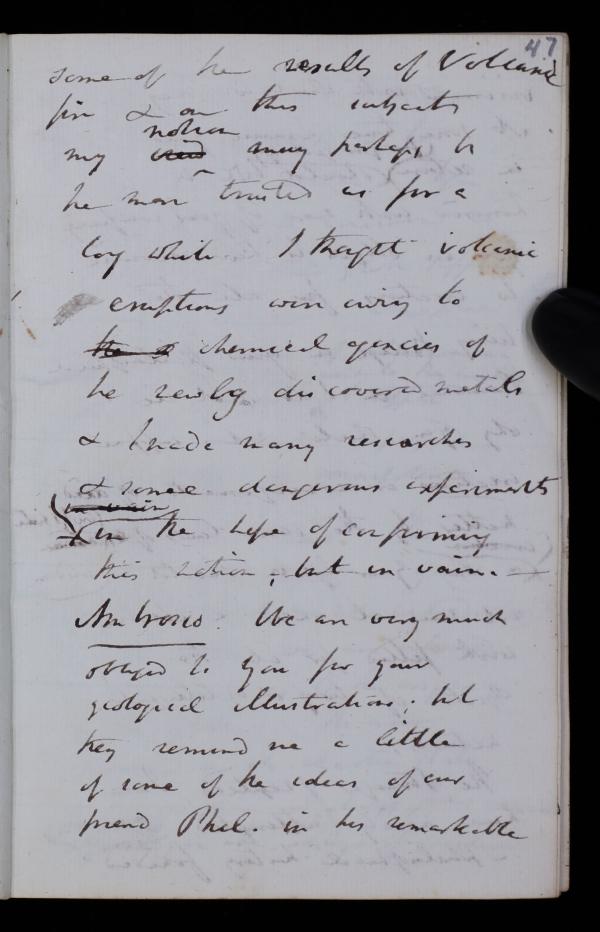 47
some of the results of Volcanic
fire & on this subject
notion
my view may perhaps be
the more trusted as for a
long while I thought volcanic
eruptions were owing to
chemical agencies of
the newly discovered metals
& I made many researches
& some dangerous experiments
in vain
in the hope of confirming
this notion; but in vain. —
Ambrosio. We are very much
obliged to you for your
geological illustrations; but
they remind me a little
of some of the ideas of our
friend Phil. in his remarkable